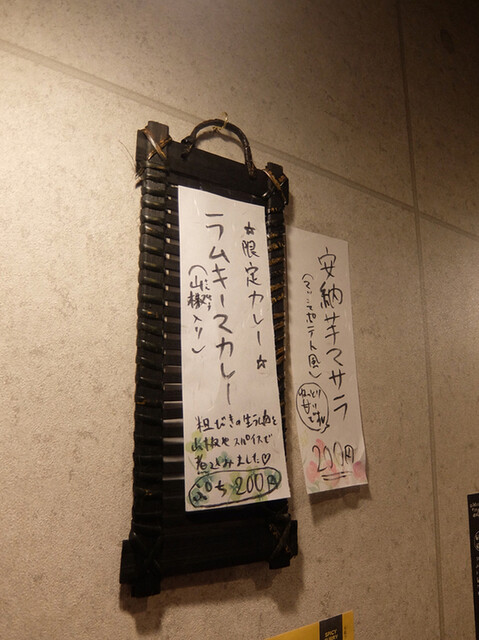 安納芋マサラ
(マッシュポテト風)
ねっとり
甘い
ですよ
200円
☆限定カレー☆
ラムキーマカレー
(山椒入り)
粗びきの生ラム肉を
山椒やスパイスで
煮込みました♡
ぷち200円
SPICY
CURRY